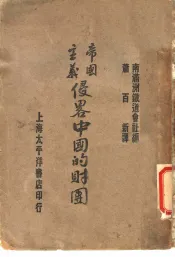 南滿洲鐵道會社編
蕭百新譯
帝國主義
侵畧中國的財團
上海太平洋書店印行